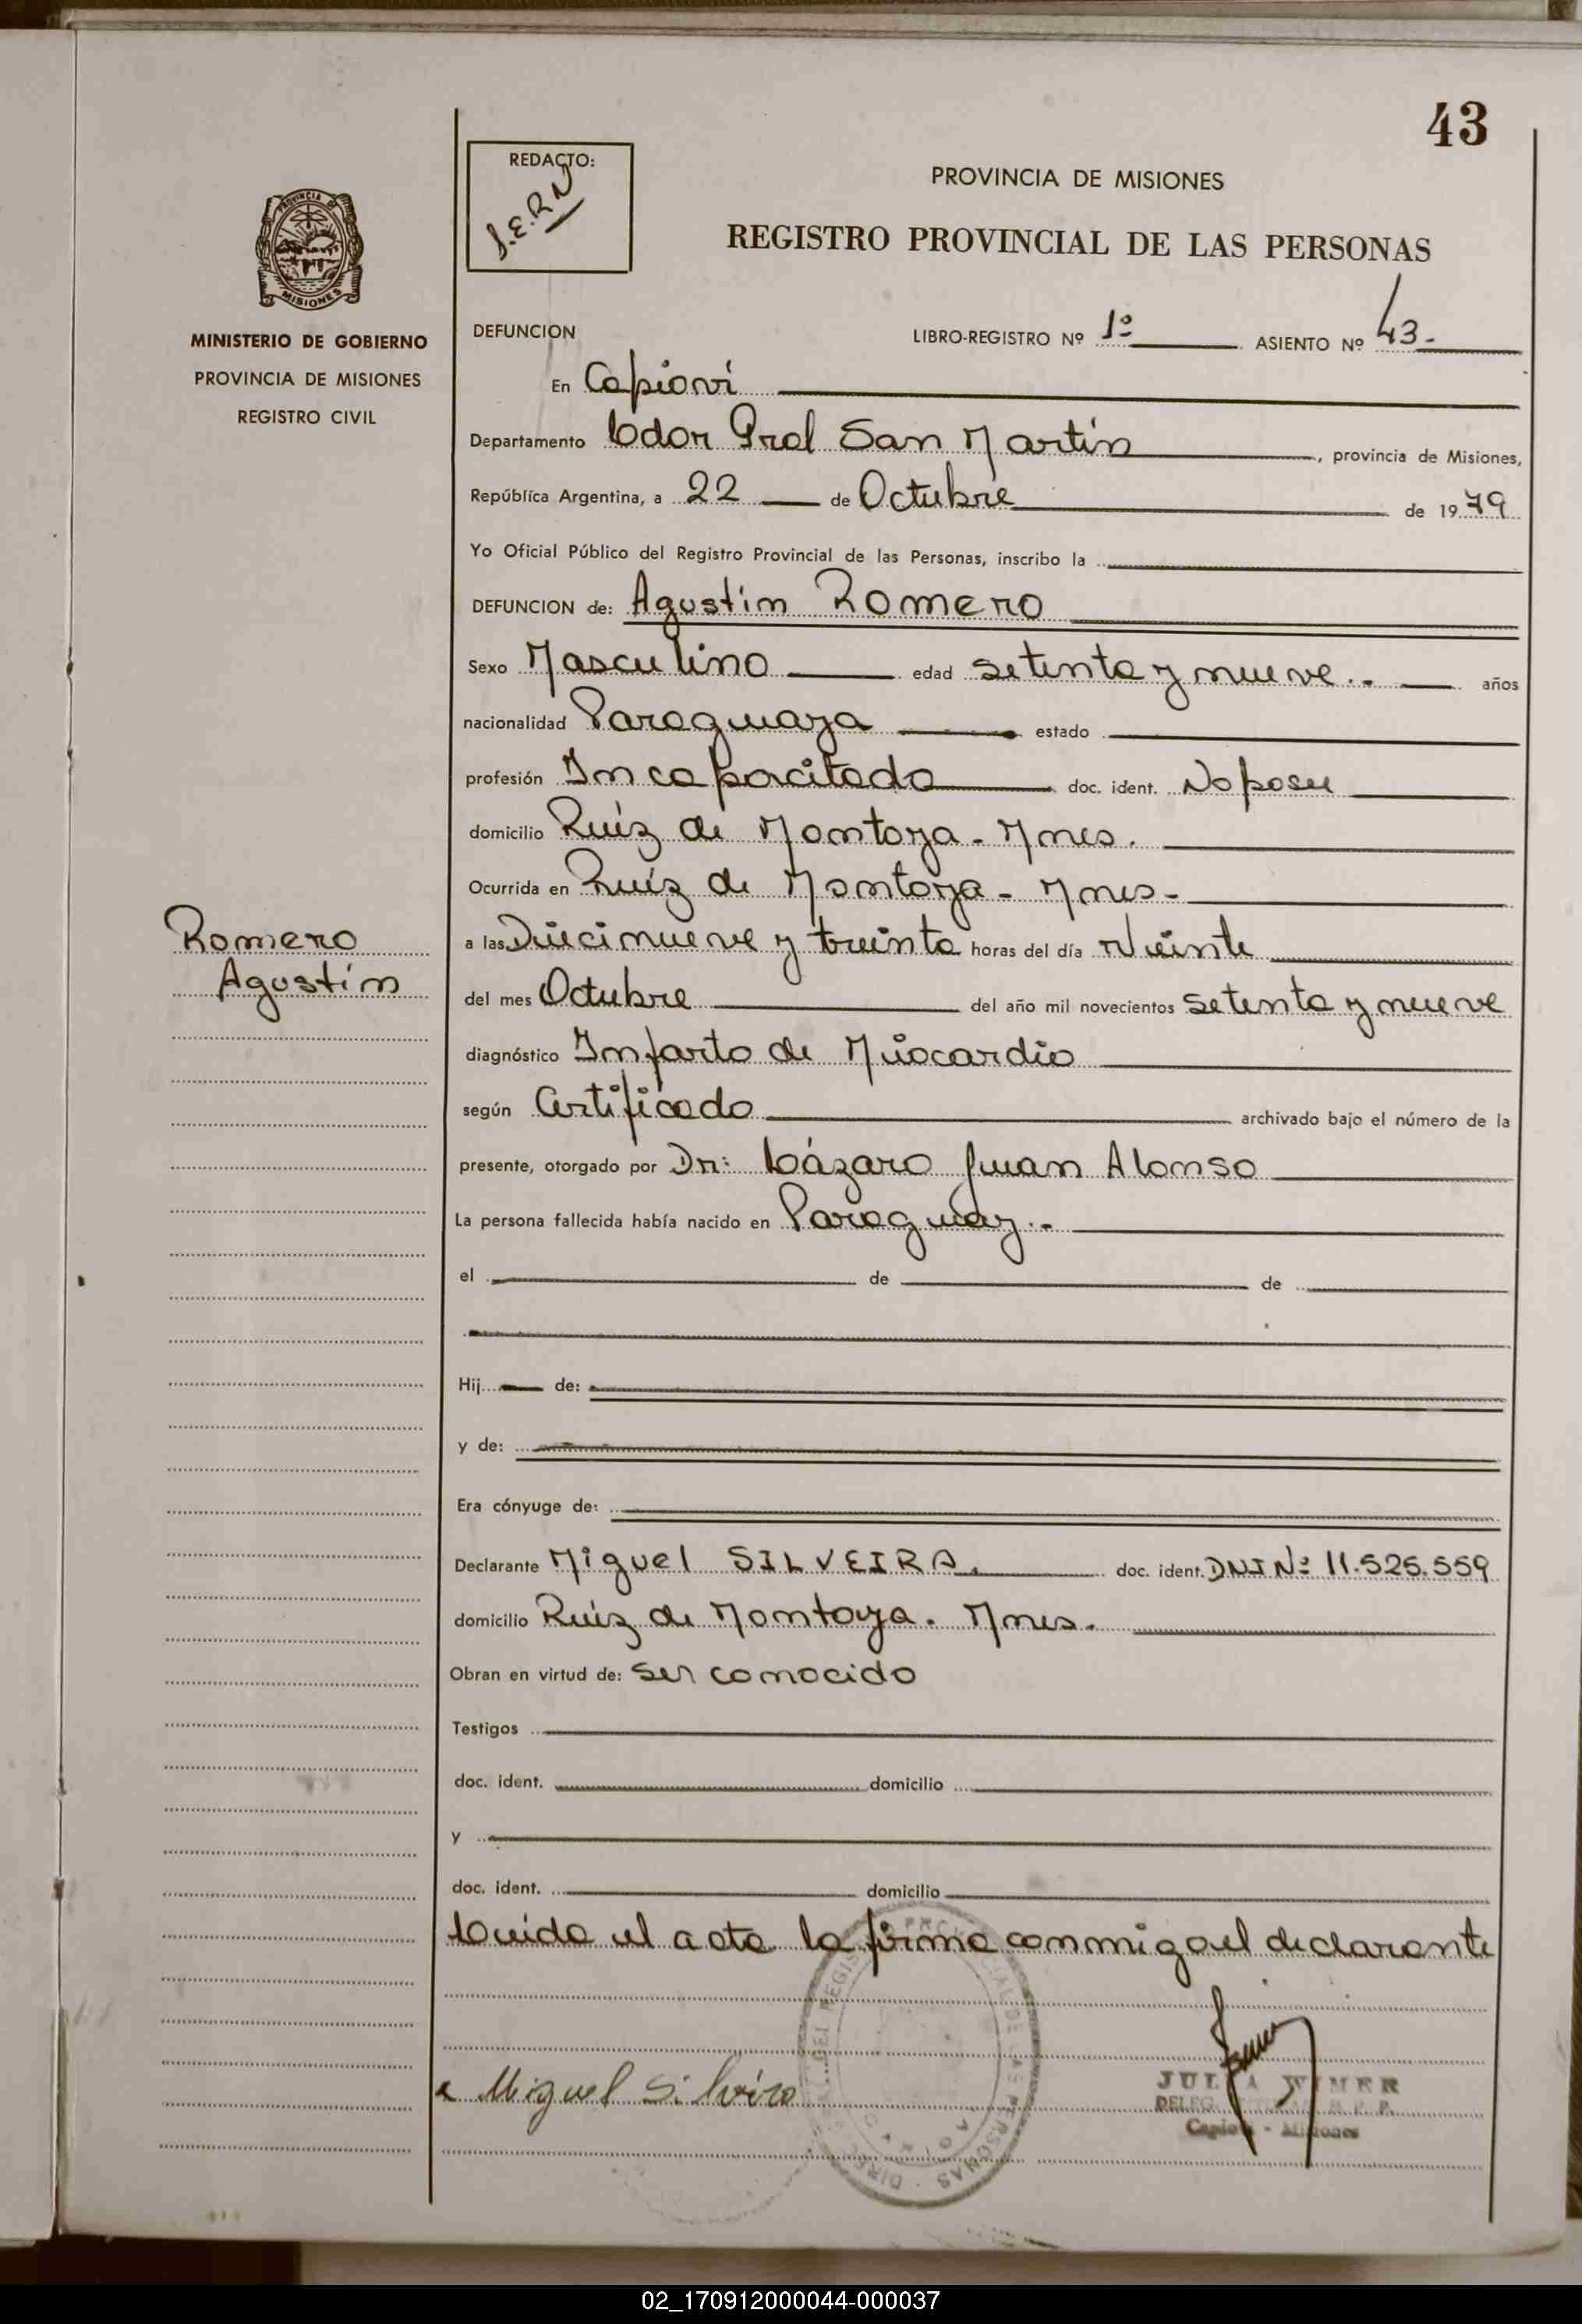 43
REDACTO:
J.E.R.N
PROVINCIA DE MISIONES
REGISTRO PROVINCIAL DE LAS PERSONAS
PROVINCIA DE
MISIONES
MINISTERIO DE GOBIERNO
PROVINCIA DE MISIONES
REGISTRO CIVIL
DEFUNCION
LIBRO-REGISTRO Nº 1º ASIENTO Nº 43.-
En Capioví
Departamento Ldor Gral San Martín, provincia de Misiones,
República Argentina, a 22 de Octubre de 1979
Yo Oficial Público del Registro Provincial de las Personas, inscribo la
DEFUNCION de: Agustín Romero
Sexo Masculino edad setenta y nueve.- años
nacionalidad Paraguaya estado
profesión Incapacitado doc. ident. No posee
domicilio Ruíz de Montoya - Mnes.
Ocurrida en Ruíz de Montoya - Mnes -
Romero
Agustín
a las Diecinueve y treinta horas del día Veinte
del mes Octubre del año mil novecientos setenta y nueve
diagnóstico Infarto de Miocardio
según Certificado archivado bajo el número de la
presente, otorgado por Dr: Lázaro Juan Alonso
La persona fallecida había nacido en Paraguay.-
el de de
Hij de:
y de:
Era cónyuge de:
Declarante Miguel SILVEIRA. doc. ident. DNI Nº 11.525.559
domicilio Ruíz de Montoya. Mnes.
Obran en virtud de: ser conocido
Testigos
doc. ident. domicilio
y
doc. ident. domicilio
Leída el acta la firma conmigo el declarante
Miguel Silveira
JULIA WIMER
Capioví - Misiones
02_170912000044-000037